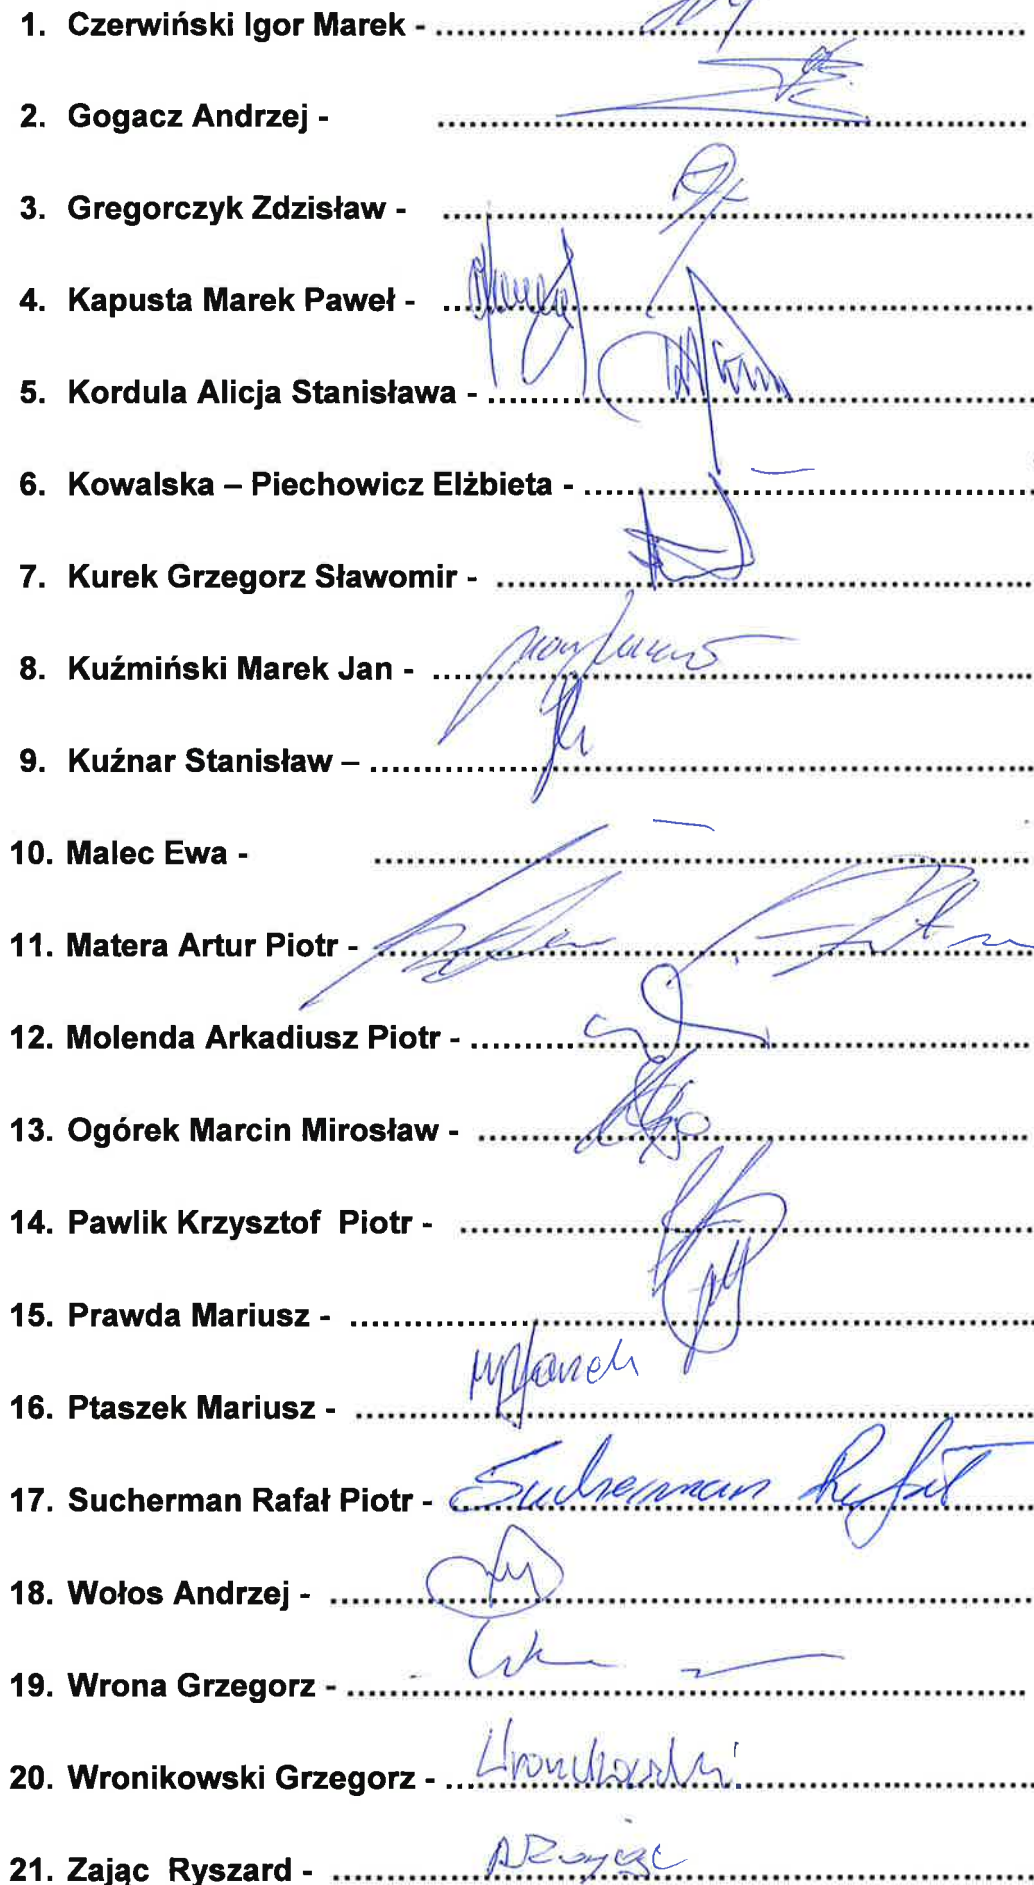 1. Czerwiński Igor Marek - ..........
2. Gogacz Andrzej - ..........
3. Gregorczyk Zdzisław - ..........
4. Kapusta Marek Paweł - ..........
5. Kordula Alicja Stanisława - ..........
6. Kowalska – Piechowicz Elżbieta - ..........
7. Kurek Grzegorz Sławomir - ..........
8. Kuźmiński Marek Jan - ..........
9. Kuźnar Stanisław – ..........
10. Malec Ewa - ..........
11. Matera Artur Piotr - ..........
12. Molenda Arkadiusz Piotr - ..........
13. Ogórek Marcin Mirosław - ..........
14. Pawlik Krzysztof Piotr - ..........
15. Prawda Mariusz - ..........
16. Ptaszek Mariusz - ..........
17. Sucherman Rafał Piotr - Sucherman Rafał
18. Wołos Andrzej - ..........
19. Wrona Grzegorz - ..........
20. Wronikowski Grzegorz - Wronikowski
21. Zając Ryszard - ..........